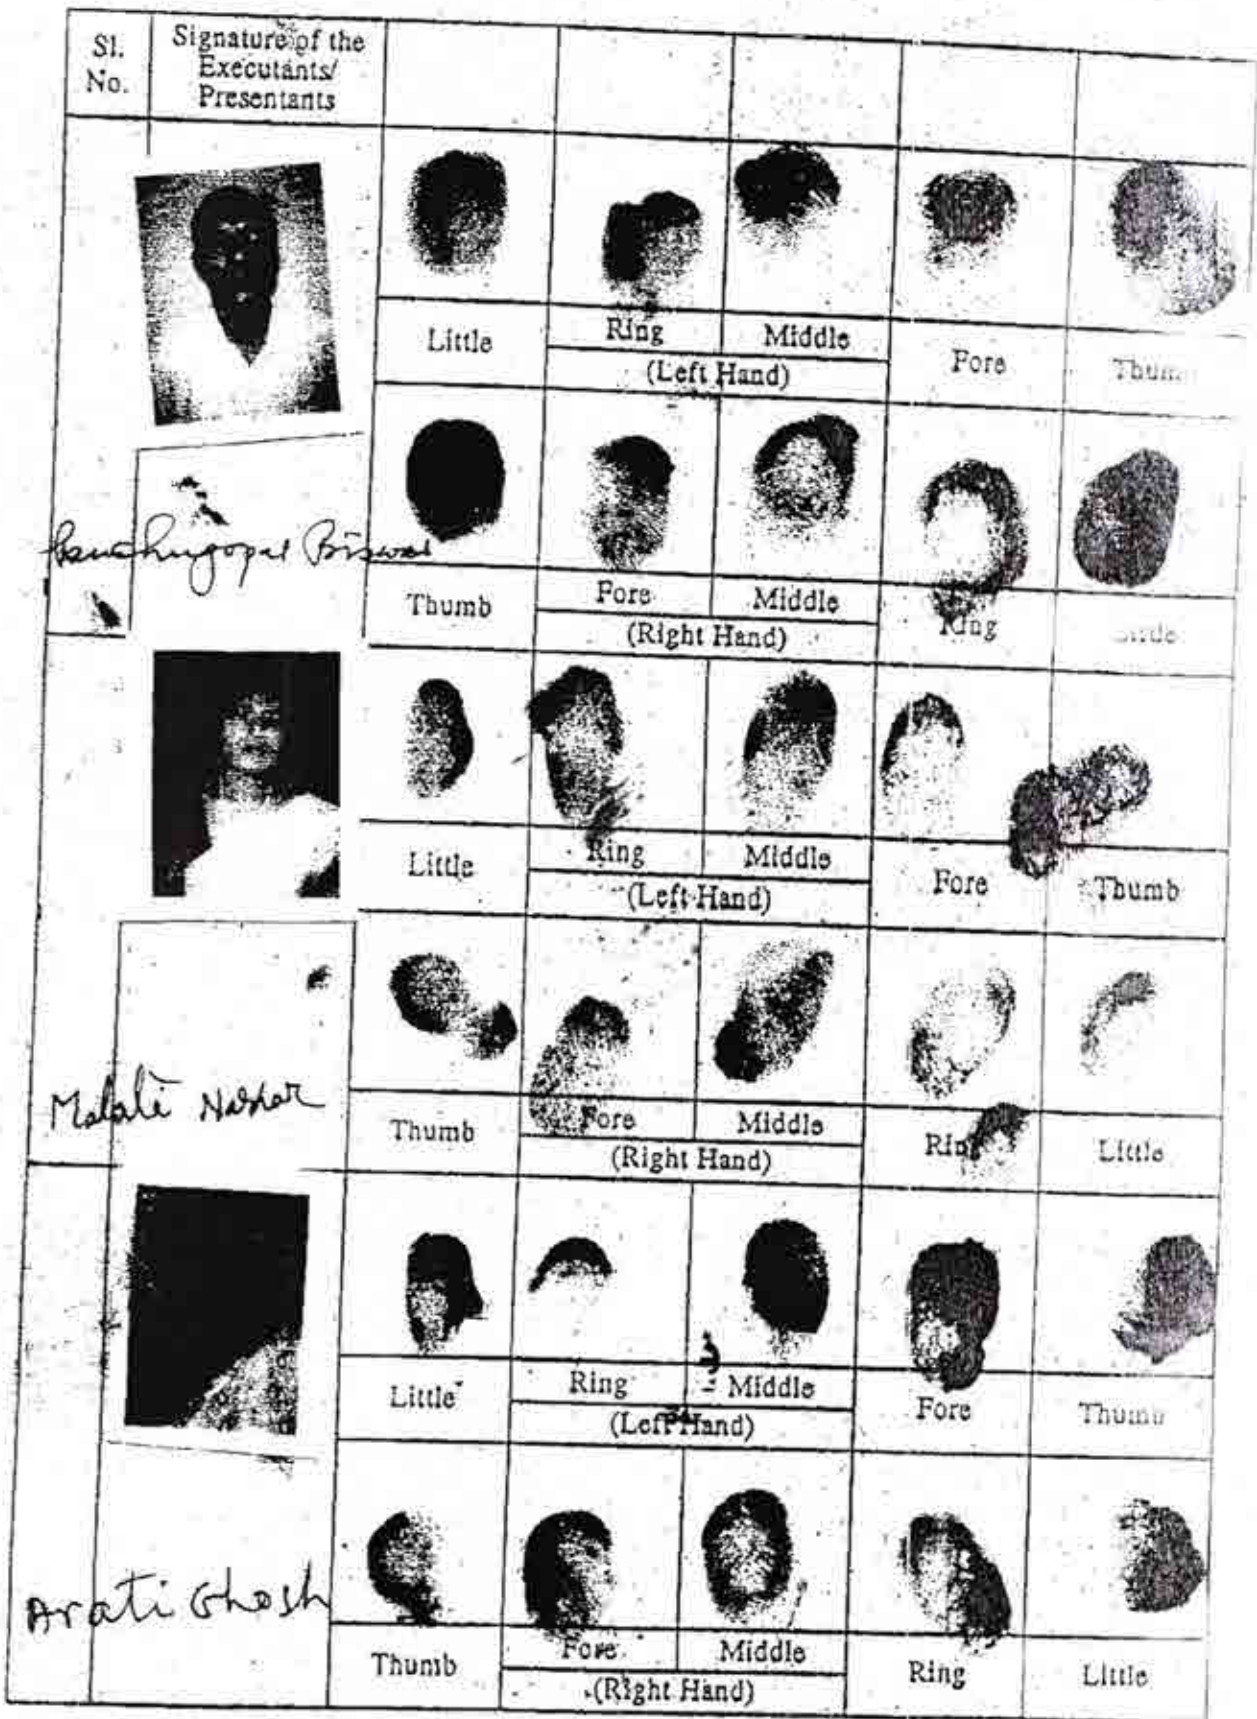 Sl. No.
Signature of the Executants/ Presentants
Little Ring Middle Fore Thumb
(Left Hand)
Panchugopal Biswas
Thumb Fore Middle Ring Little
(Right Hand)
Little Ring Middle Fore Thumb
(Left Hand)
Malati Naskar
Thumb Fore Middle Ring Little
(Right Hand)
Little Ring Middle Fore Thumb
(Left Hand)
Arati Ghosh
Thumb Fore Middle Ring Little
(Right Hand)